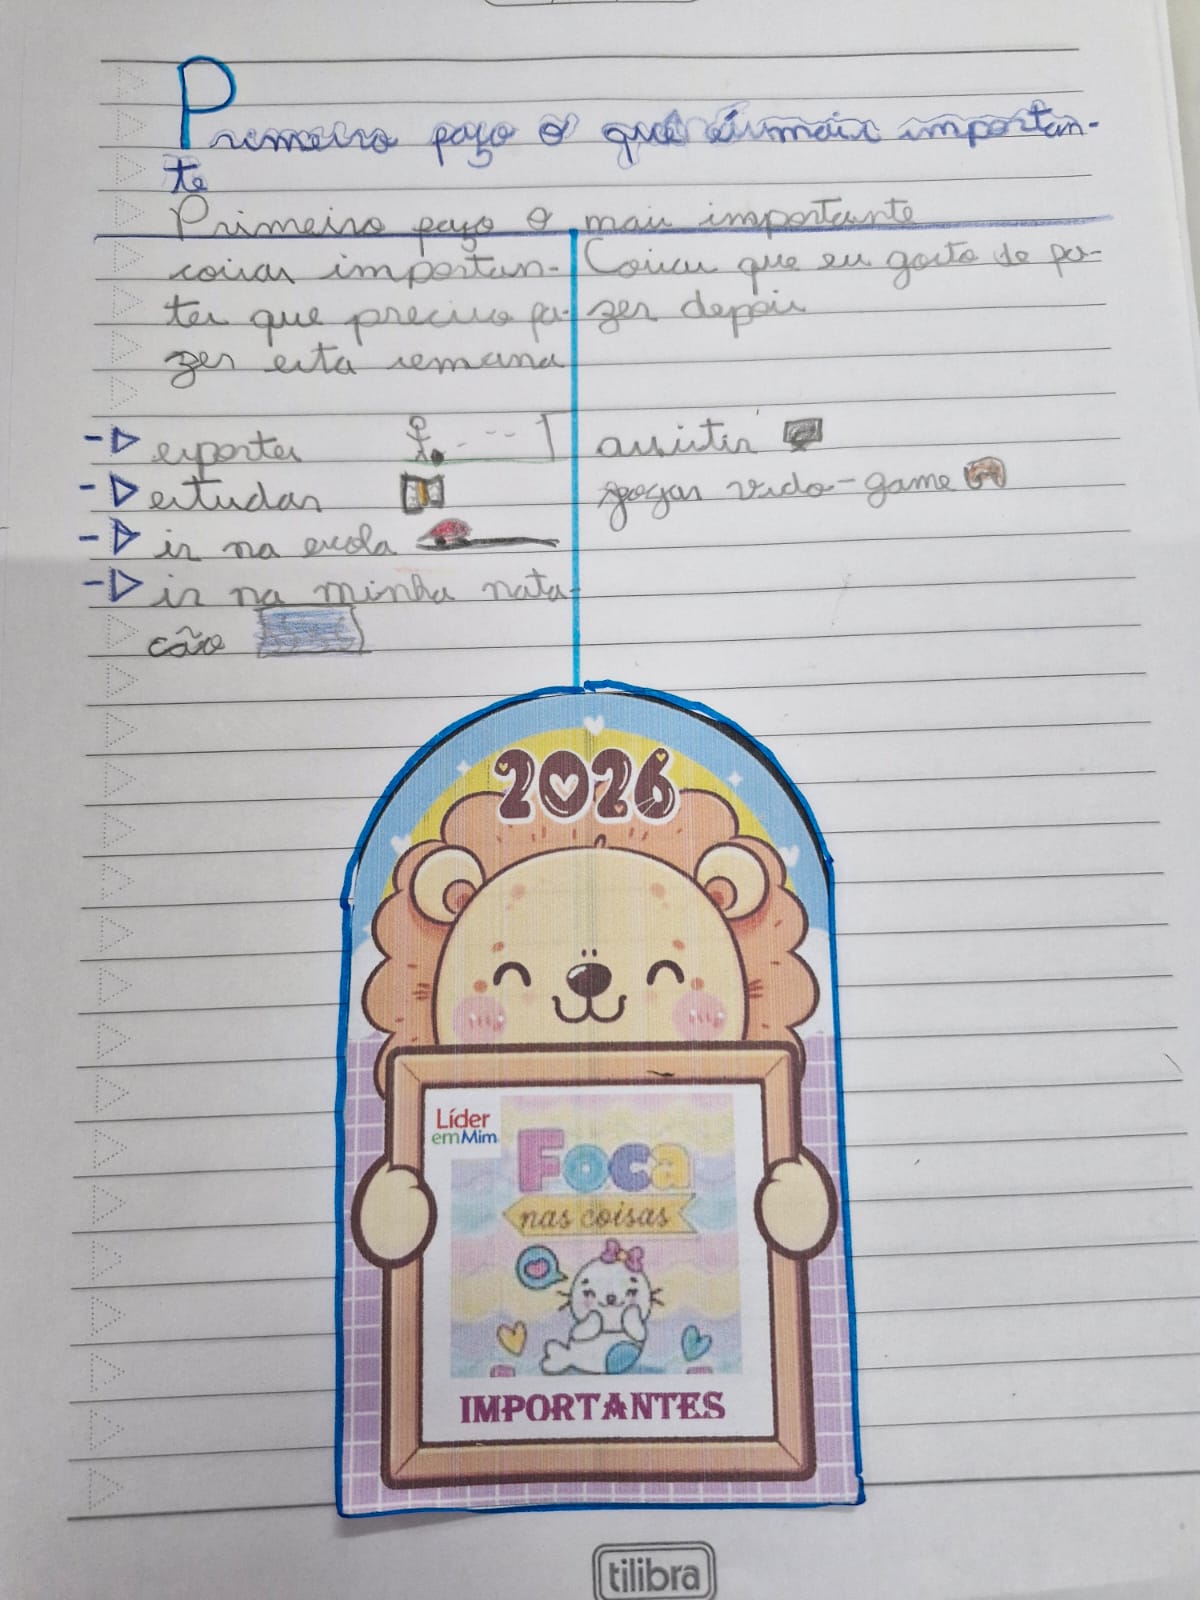 Primeiro faço o que é mais importan-
te
Primeiro faço o mais importante
coisas importan-
tes que preciso fa-
zer esta semana
Coisas que eu gosto de fa-
zer depois
esportes
estudar
ir na escola
ir na minha nata-
cão
assistir
jogar vido-game
2026
Líder
emMim
Foca
nas coisas
IMPORTANTES
tilibra